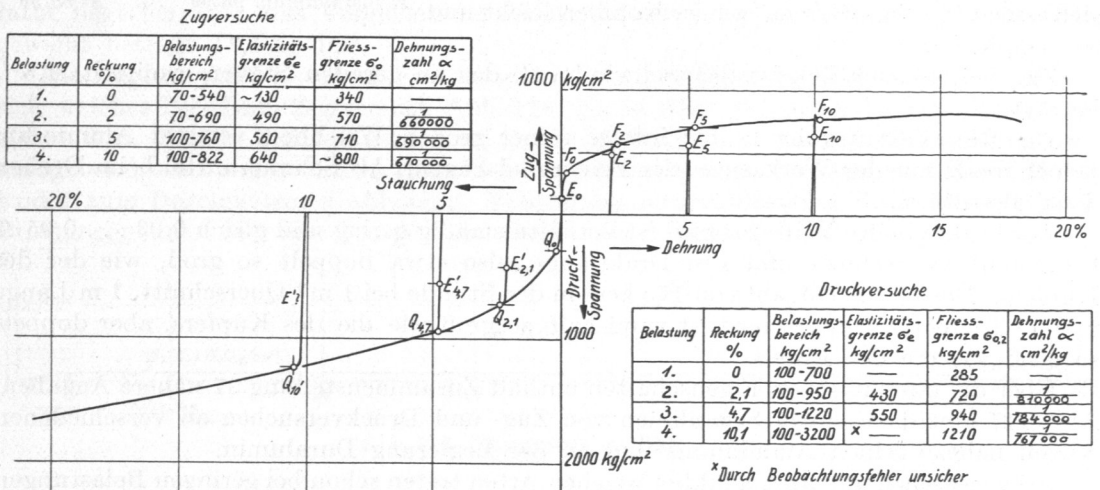 Zugversuche
Belastung Reckung % Belastungs-bereich kg/cm² Elastizitäts-grenze σe kg/cm² Fliess-grenze σo kg/cm² Dehnungs-zahl ∝ cm²/kg
1. 0 70-540 ~130 340
2. 2 70-690 490 570 1/660000
3. 5 100-760 560 710 1/690000
4. 10 100-822 640 ~800 1/670000
1000 kg/cm²
Zug-Spannung
F0 F2 F5 F10
E0 E2 E5 E10
Stauchung
20% 10 5 5 10 15 20%
Dehnung
Druck-Spannung
Q0
E'2,1
E'4,7
E'?
Q2,1
Q4,7
Q10'
1000
2000 kg/cm²
Druckversuche
Belastung Reckung % Belastungs-bereich kg/cm² Elastizitäts-grenze σe kg/cm² Fliess-grenze σ0,2 kg/cm² Dehnungs-zahl ∝ cm²/kg
1. 0 100-700 — 285 —
2. 2,1 100-950 430 720 1/810000
3. 4,7 100-1220 550 940 1/784000
4. 10,1 100-3200 x 1210 1/767000
x Durch Beobachtungsfehler unsicher